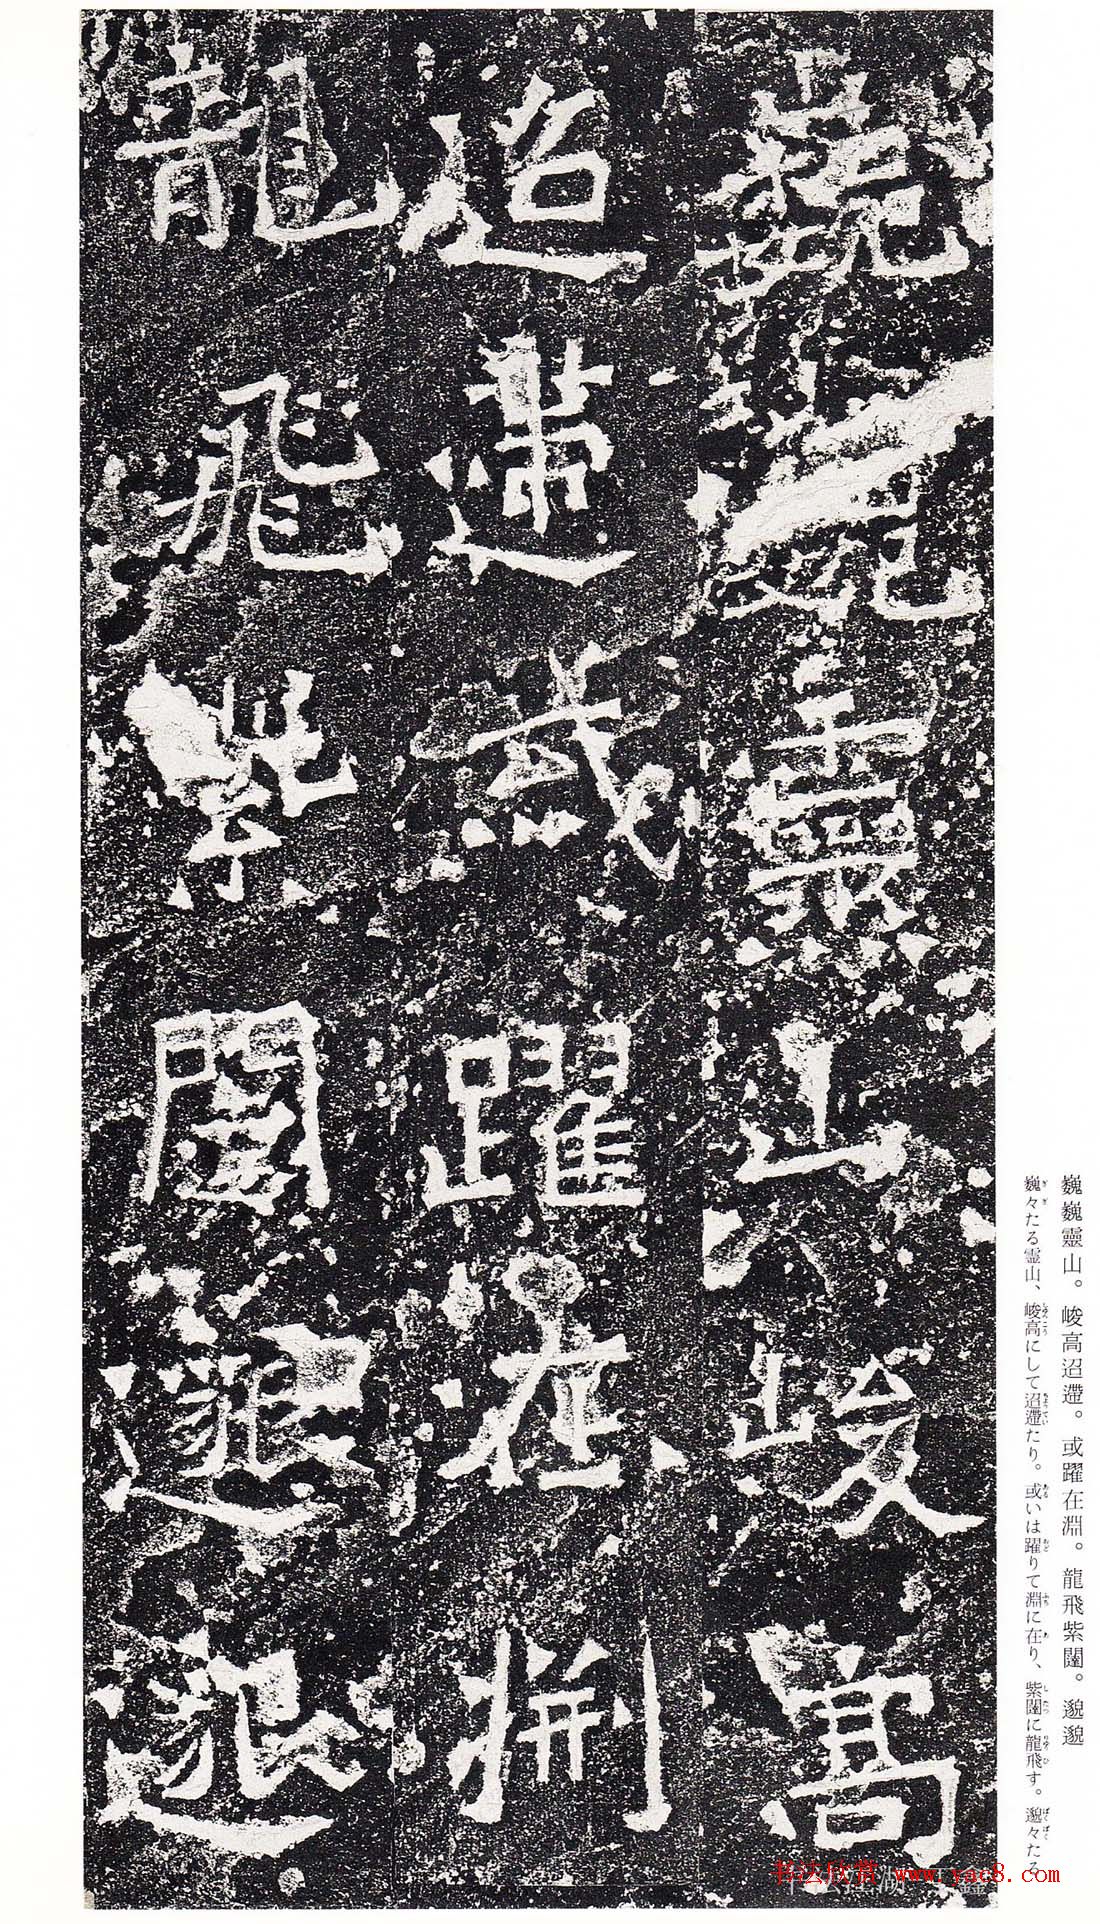 巍巍靈山峻高
迢遰或躍在淵
龍飛紫闥邈邈
巍巍靈山。峻高迢遰。或躍在淵。龍飛紫闥。邈邈
巍々たる霊山、峻高にして迢遰たり。或いは躍りて淵に在り、紫闥に龍飛す。邈々たる
书法欣赏 www.yac8.com